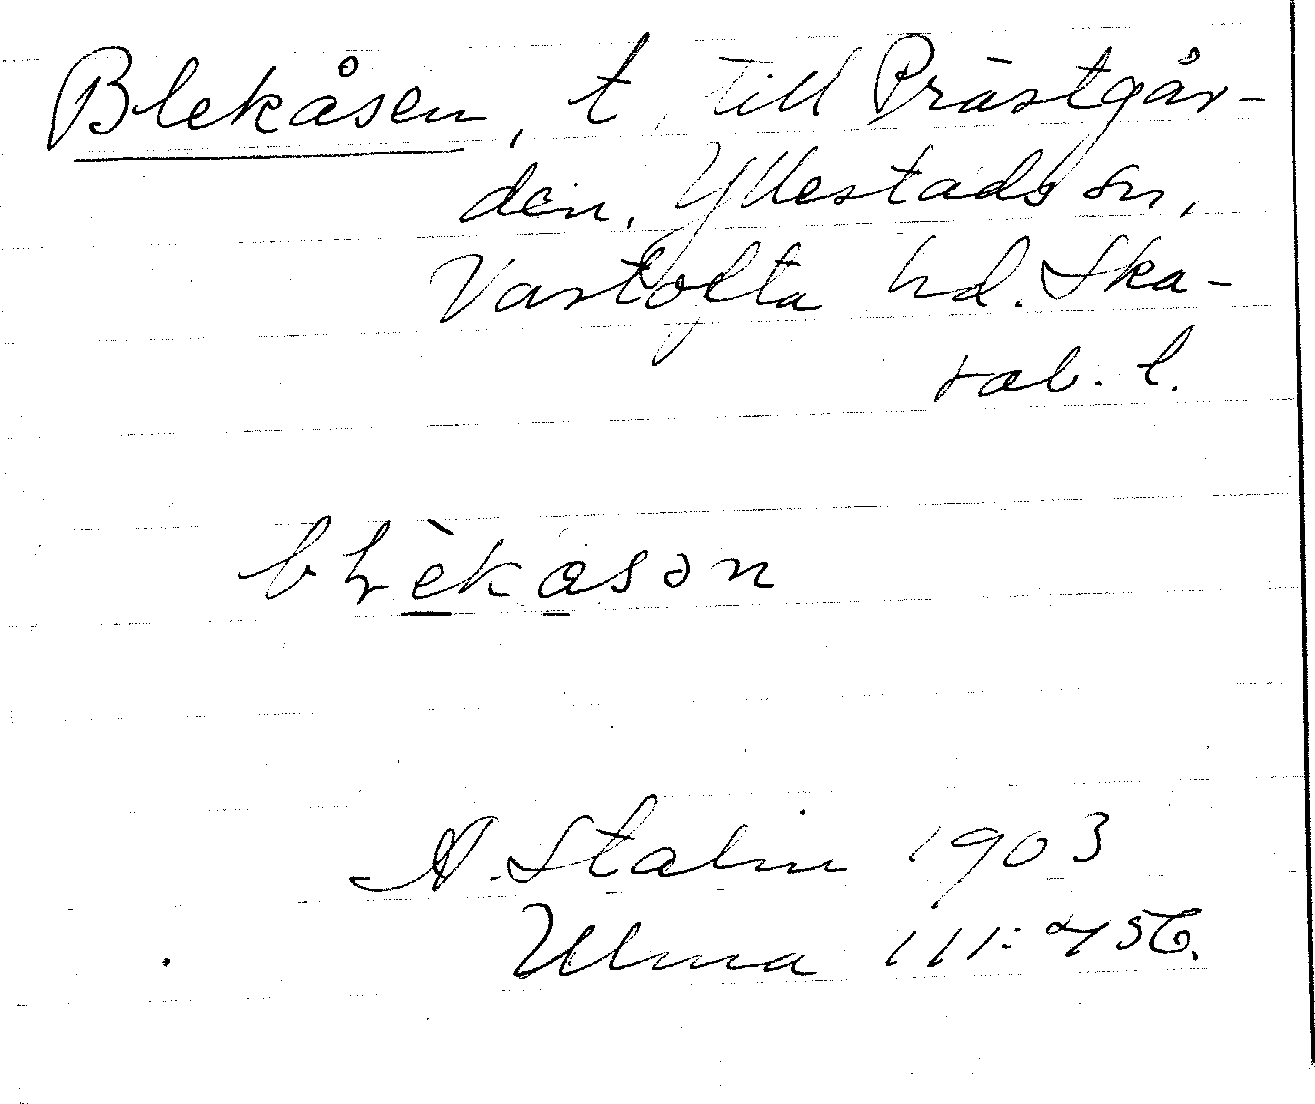 Blekåsen, t. till Prästgår-
den, Yllestads sn,
Vartofta hd. Ska-
rab. l.
bḷèkåsən
A. Stalin 1903
Ulma 111: